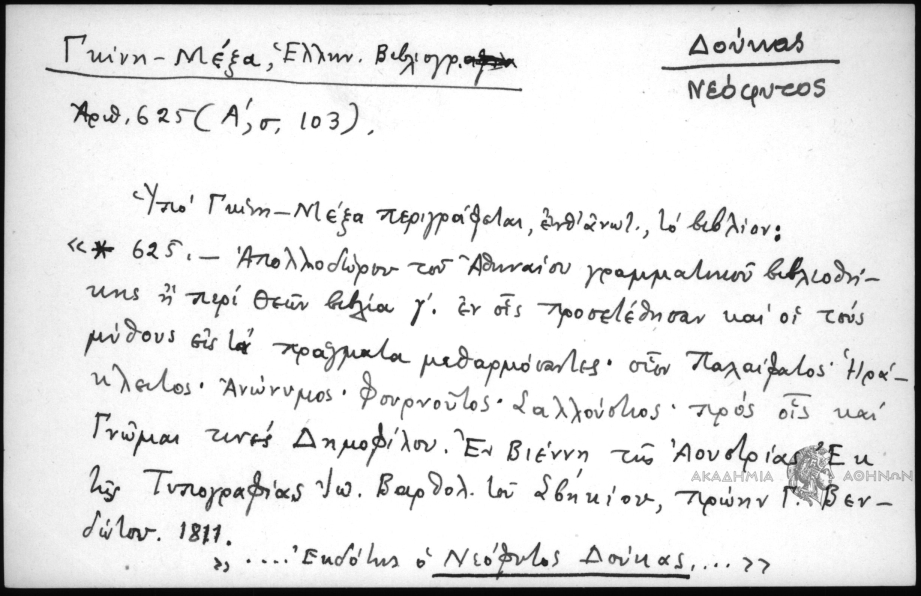 Γκίνη – Μέξα, Ἑλλην. Βιβλιογρ.
Δούκας
Νεόφυτος
Ἀριθ. 625 (Α΄, σ. 103).
Ὑπὸ Γκίνη – Μέξα περιγράφεται, ἐνθ᾽ ἀνωτ., τὸ βιβλίον:
«* 625. – Ἀπολλοδώρου τοῦ Ἀθηναίου γραμματικοῦ βιβλιοθή-
κης ἢ περὶ θεῶν βιβλία γ΄. ἐν οἷς προσετέθησαν καὶ οἱ τοὺς
μύθους εἰς τὰ πράγματα μεθαρμόσαντες· οἷον Παλαίφατος· Ἡρά-
κλειτος· Ἀνώνυμος· Φουρνοῦτος· Σαλλούστιος· πρὸς οἷς καὶ
Γνῶμαι τινές Δημοφίλου. Ἐν Βιέννῃ τῆς Ἀουστρίας Ἐκ
τῆς Τυπογραφίας Ἰω. Βαρθολ. τοῦ Σβηκίου, πρώην Γ. Βεν-
δώτου. 1811.
» .... Ἐκδότης ὁ Νεόφυτος Δούκας, ... »
ΑΚΑΔΗΜΙΑ ΑΘΗΝΩΝ